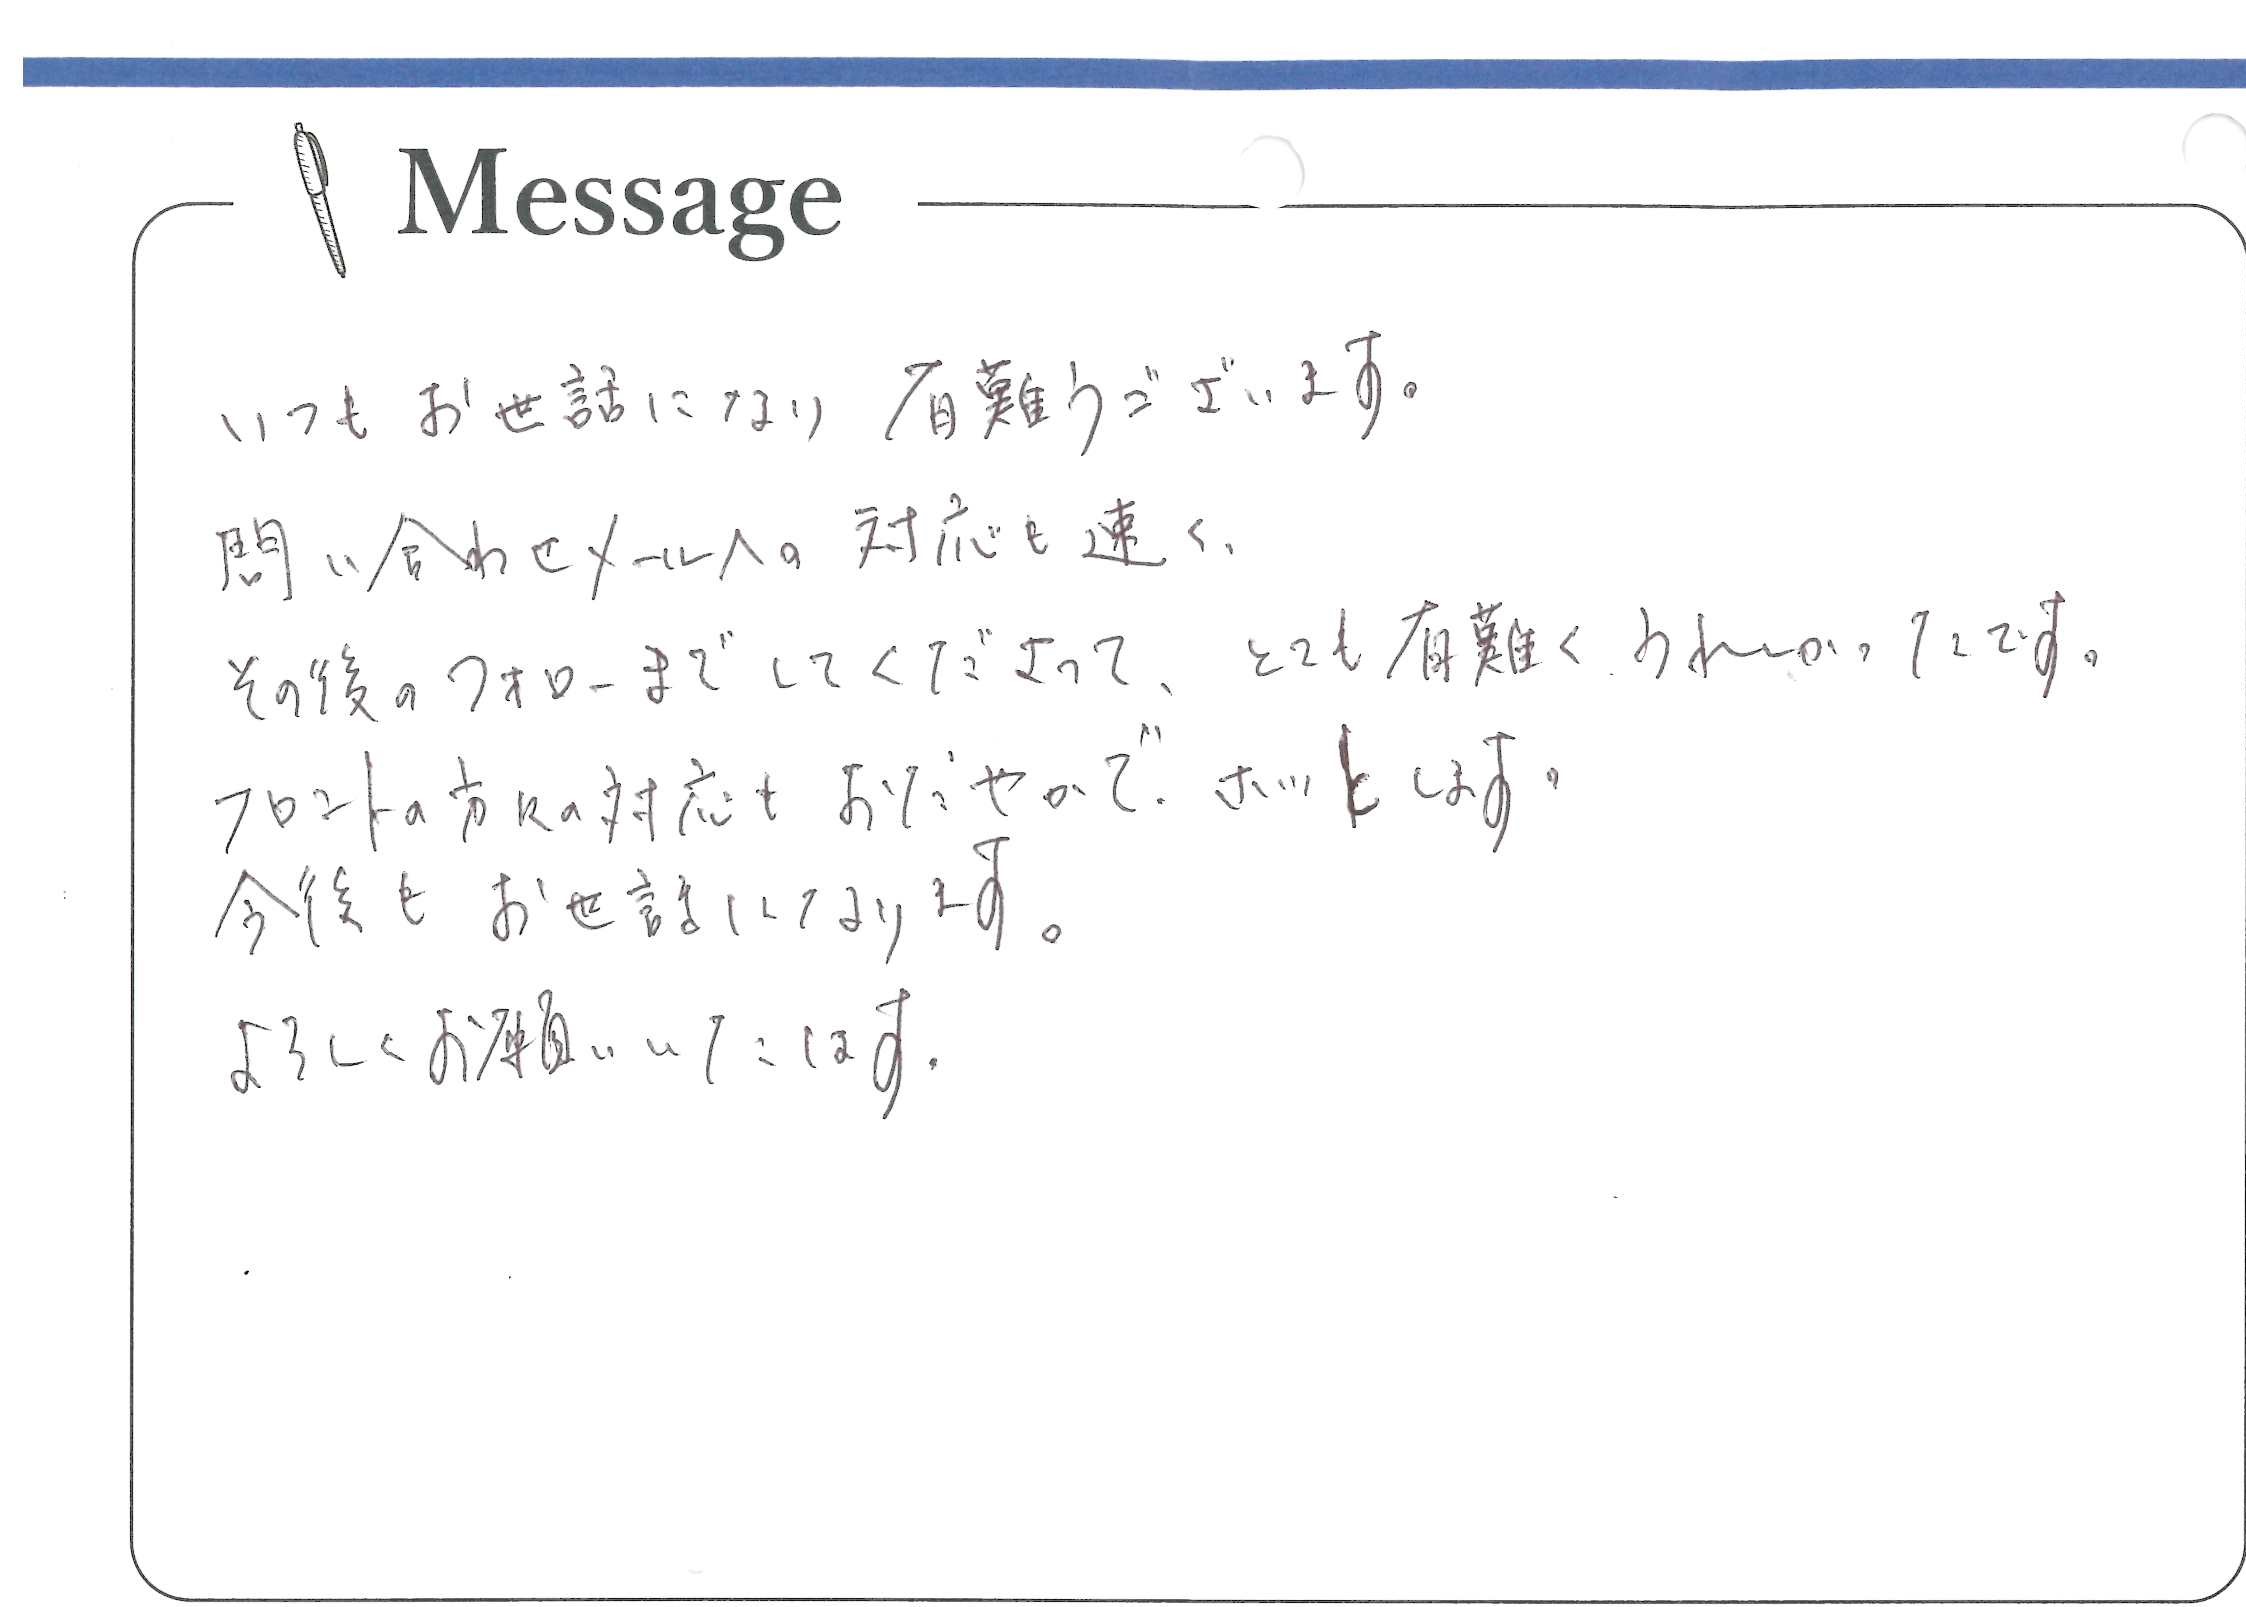 Message
いつもお世話になり 有難うございます。
問い合わせメールへの 対応も速く、
その後のフォローまでしてくださって、とても有難く、うれしかったです。
フロントの方々の対応も おだやかで、ホッとします。
今後も お世話になります。
よろしくお願いいたします。